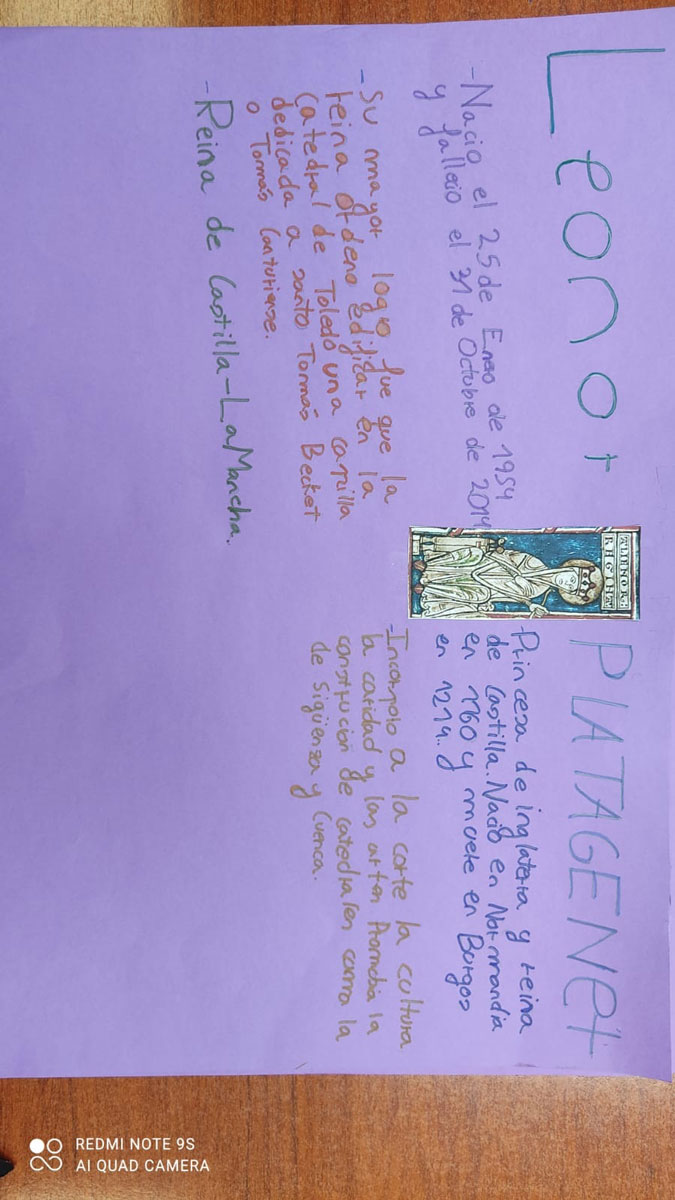 Leonor PLATAGENet
-Nacio el 25 de Enero de 1954
y fallecio el 31 de Octubre de 2014
-Su mayor logro fue que la
reina ordeno edificar en la
Catedral de Toledo una capilla
dedicada a santo Tomás Becket
o Tomás Canturiense.
-Reina de Castilla-LaMancha.
ALIENOR
REGINA
-Princesa de inglaterra y reina
de Castilla. Nació en Normandia
en 1160 y muere en Burgos
en 1214.
-Incorporo a la corte la cultura
la caridad y las artes Promobia la
construcion de catedrales como la
de Sigüenza y Cuenca.
REDMI NOTE 9S
AI QUAD CAMERA